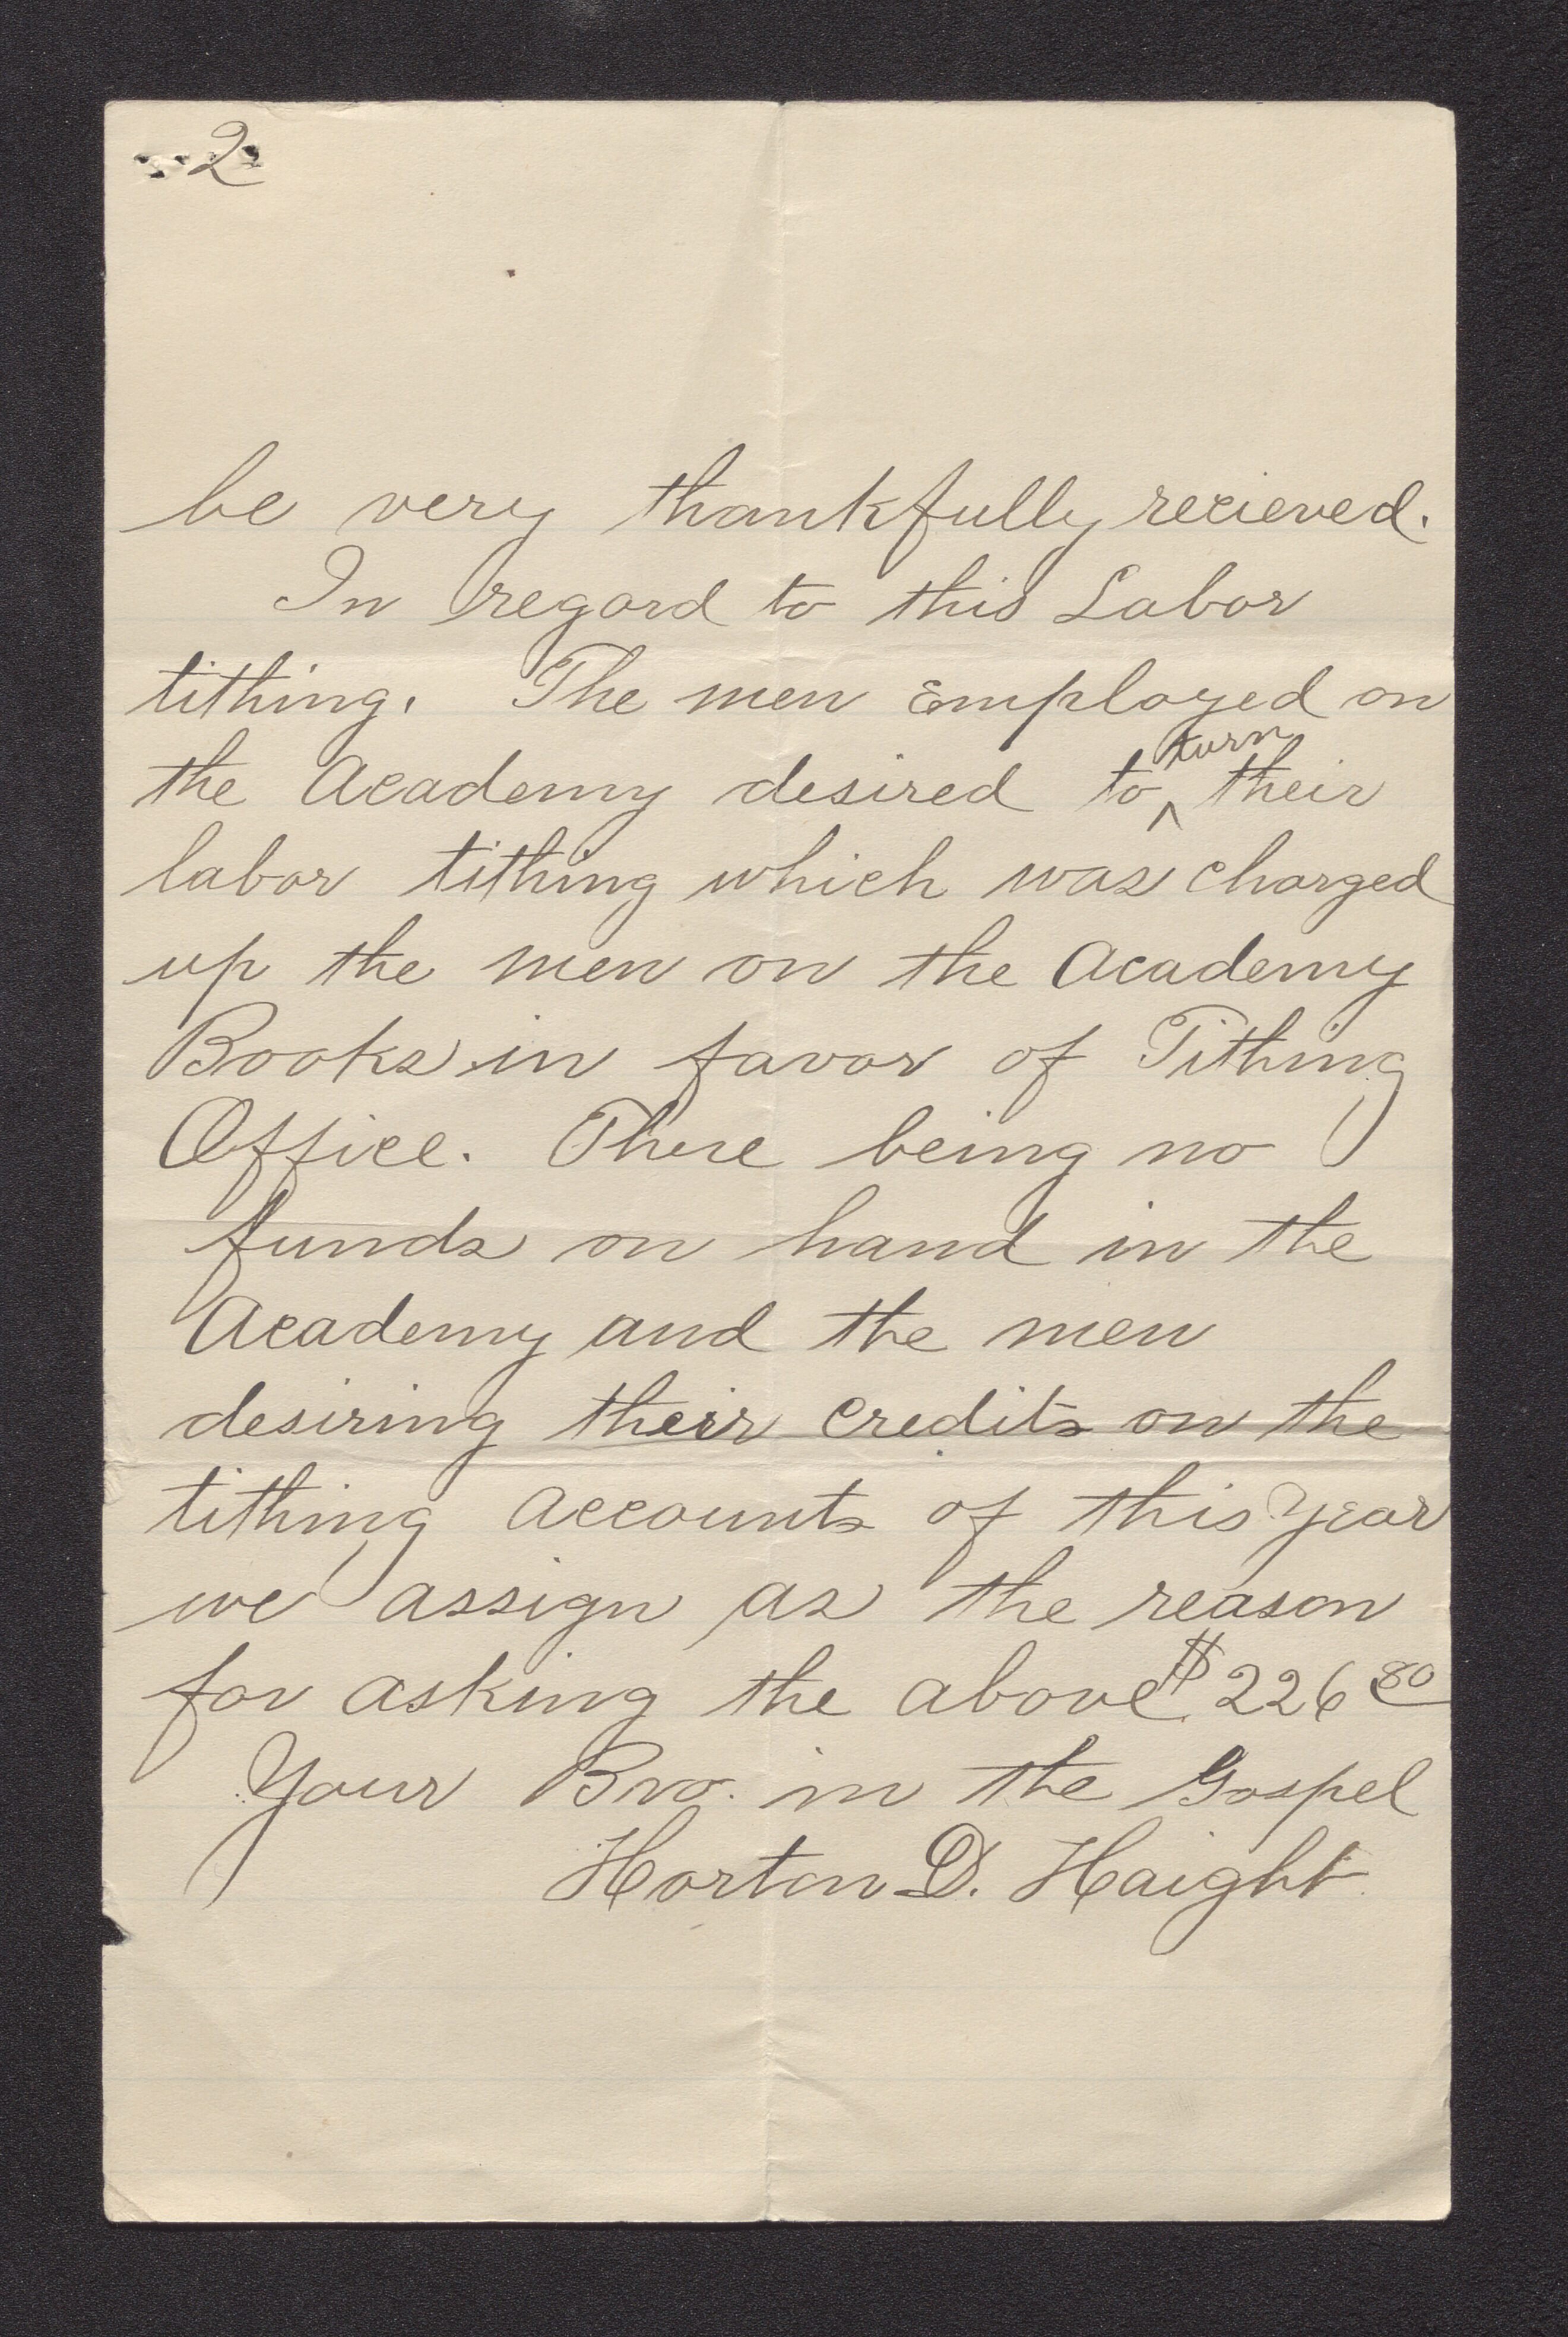 2
be very thankfully recieved.
In regard to this Labor
tithing. The men Employed on
the Academy desired to turn their
labor tithing which was charged
up the men on the Academy
Books in favor of Tithing
Office. There being no
funds on hand in the
Academy and the men
desiring their credits on the
tithing accounts of this Year
we assign as the reason
for asking the above $226 80
Your Bro. in the Gospel
Horton D. Haight